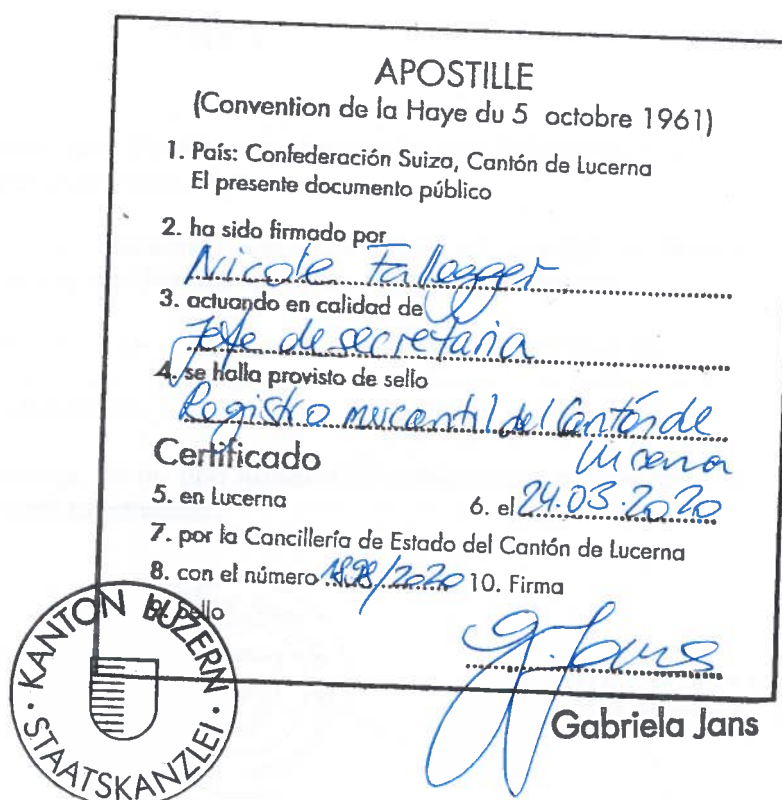 APOSTILLE
(Convention de la Haye du 5 octobre 1961)
1. País: Confederación Suiza, Cantón de Lucerna
El presente documento público
2. ha sido firmado por
Nicole Fallegger
3. actuando en calidad de
Jefe de secretaria
4. se halla provisto de sello
Registro mercantil del Cantón de
Lucerna
Certificado
5. en Lucerna 6. el 24.03.2020
7. por la Cancillería de Estado del Cantón de Lucerna
8. con el número /2020 10. Firma
9. Sello
G. Jans
Gabriela Jans
KANTON LUZERN
STAATSKANZLEI